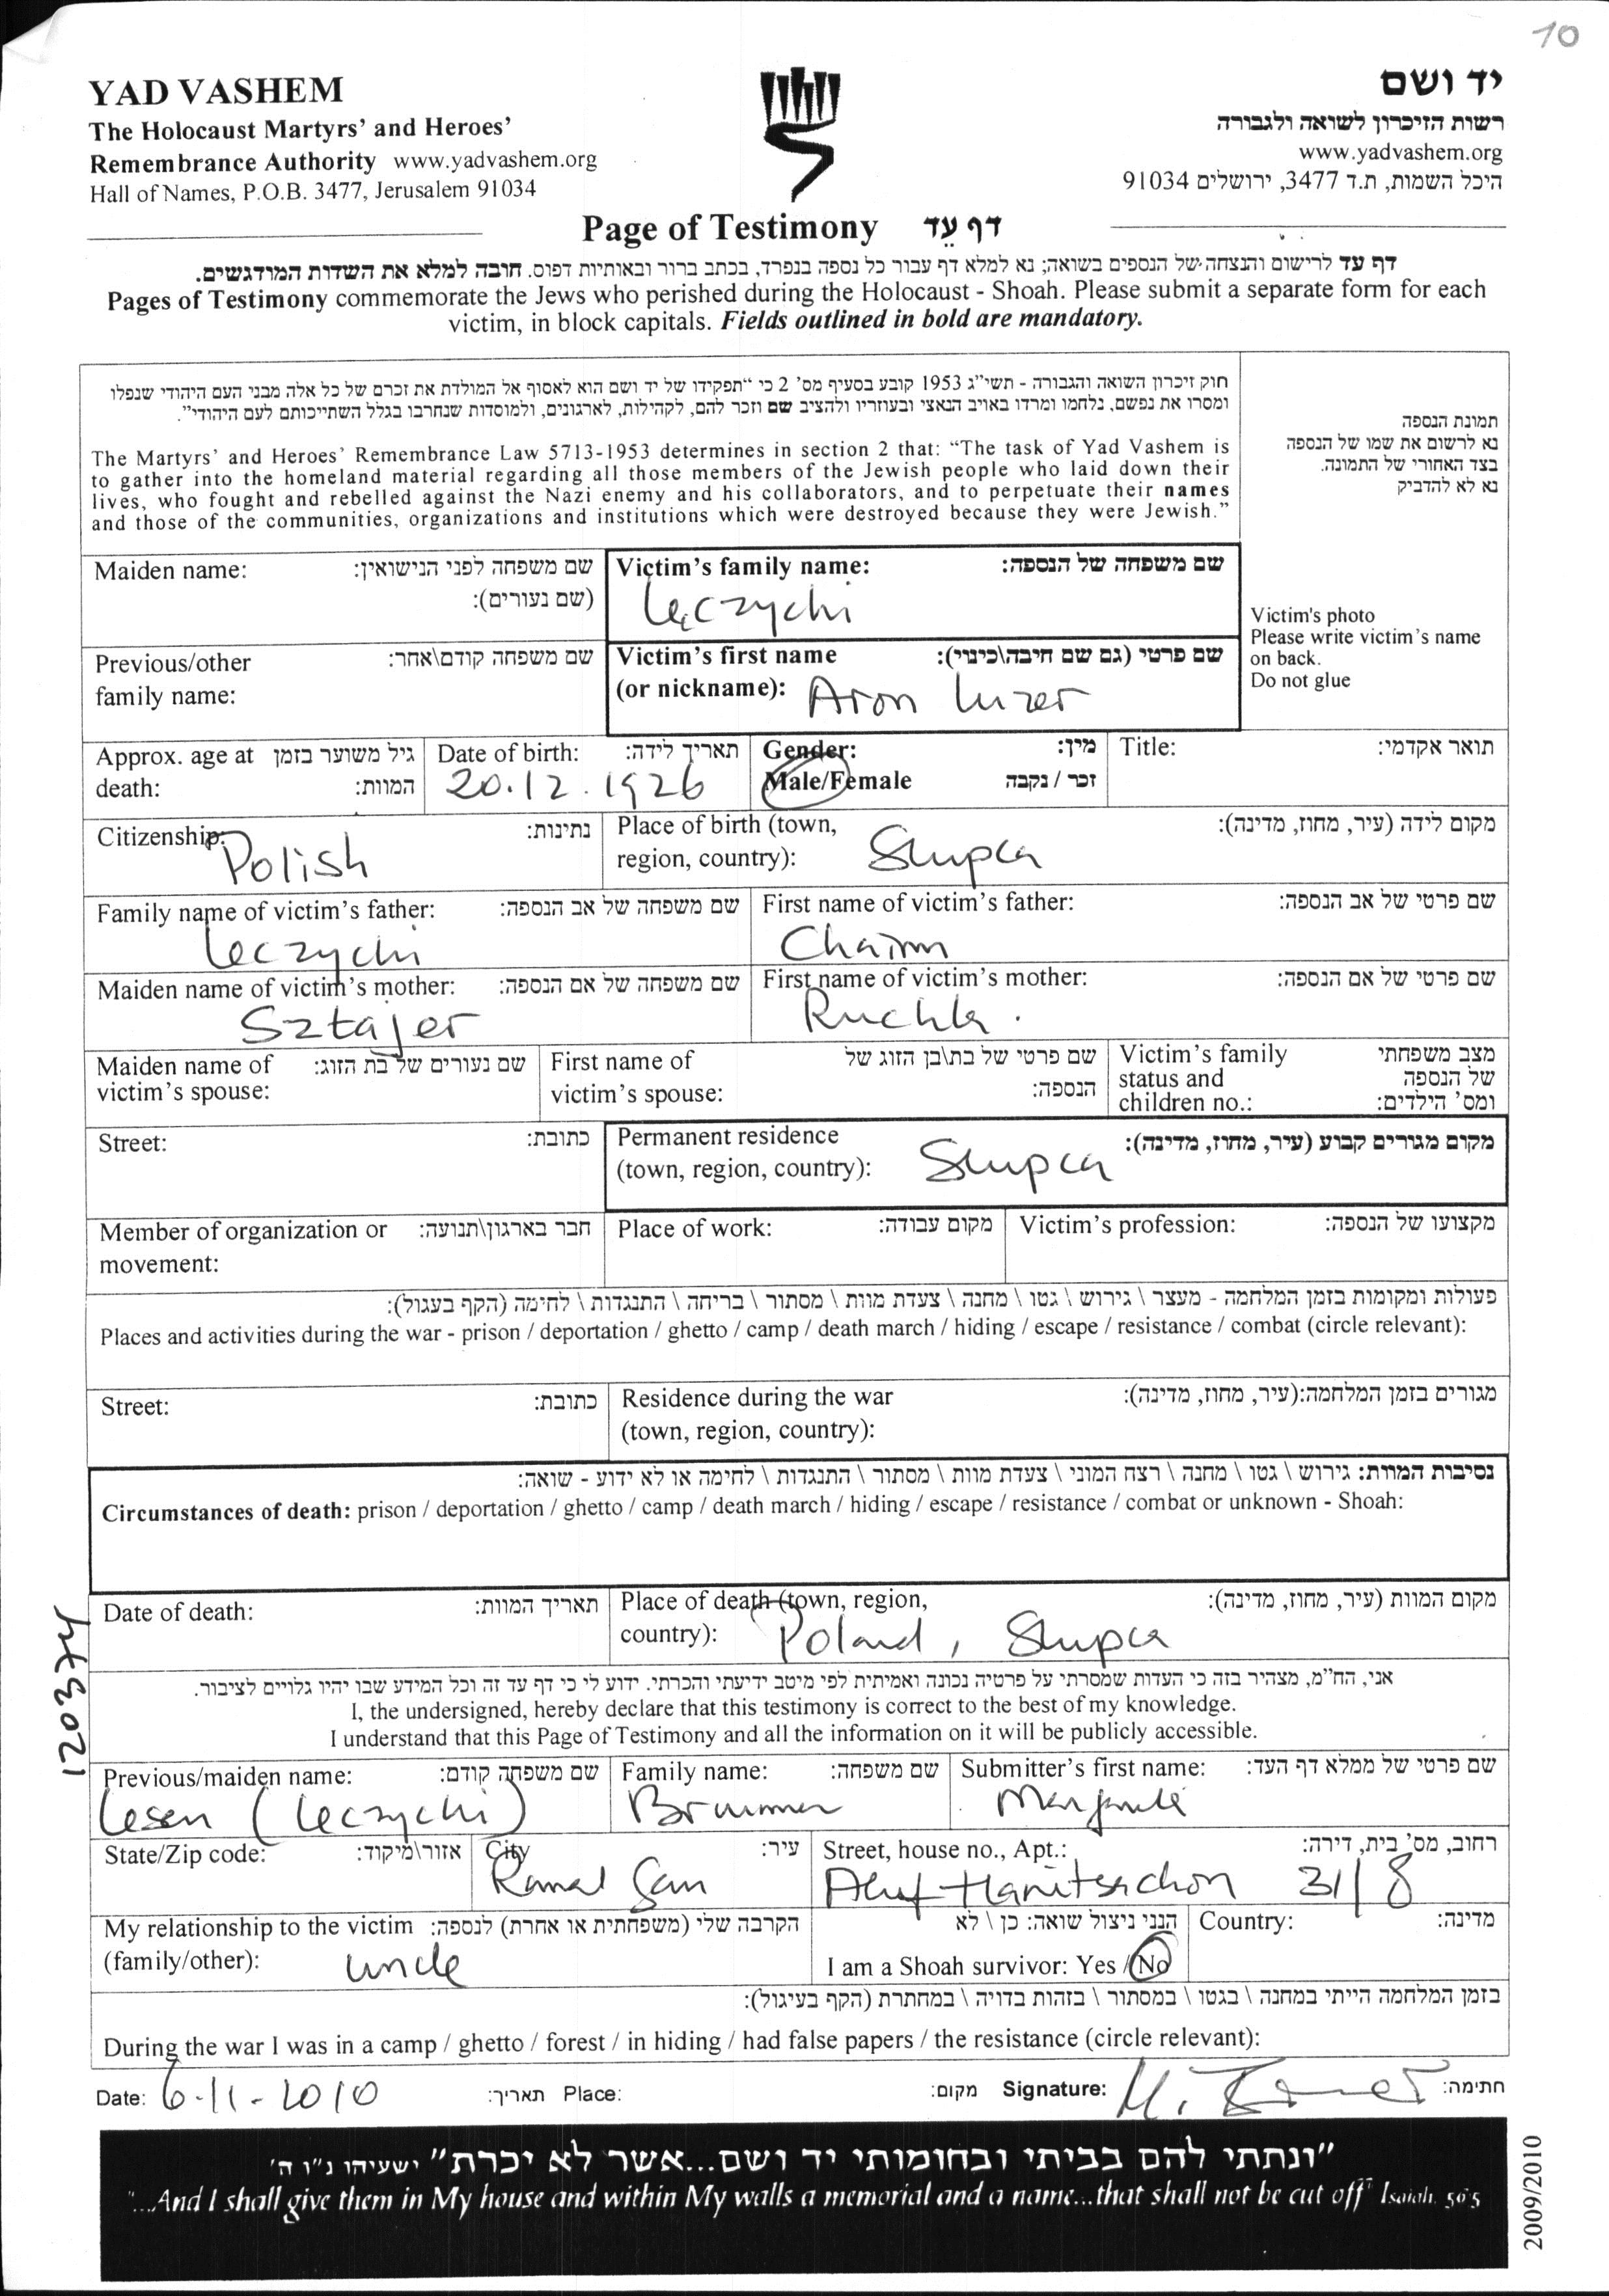 10
YAD VASHEM
The Holocaust Martyrs' and Heroes'
Remembrance Authority www.yadvashem.org
Hall of Names, P.O.B. 3477, Jerusalem 91034
יד ושם
רשות הזיכרון לשואה ולגבורה
www.yadvashem.org
היכל השמות, ת.ד 3477, ירושלים 91034
Page of Testimony דף עֵד
דף עד לרישום והנצחה של הנספים בשואה; נא למלא דף עבור כל נספה בנפרד, בכתב ברור ובאותיות דפוס. חובה למלא את השדות המודגשים.
Pages of Testimony commemorate the Jews who perished during the Holocaust - Shoah. Please submit a separate form for each
victim, in block capitals. Fields outlined in bold are mandatory.
חוק זיכרון השואה והגבורה - תשי"ג 1953 קובע בסעיף מס' 2 כי "תפקידו של יד ושם הוא לאסוף אל המולדת את זכרם של כל אלה מבני העם היהודי שנפלו
ומסרו את נפשם, נלחמו ומרדו באויב הנאצי ובעוזריו ולהציב שם וזכר להם, לקהילות, לארגונים, ולמוסדות שנחרבו בגלל השתייכותם לעם היהודי".
The Martyrs' and Heroes' Remembrance Law 5713-1953 determines in section 2 that: "The task of Yad Vashem is
to gather into the homeland material regarding all those members of the Jewish people who laid down their
lives, who fought and rebelled against the Nazi enemy and his collaborators, and to perpetuate their names
and those of the communities, organizations and institutions which were destroyed because they were Jewish."
תמונת הנספה
נא לרשום את שמו של הנספה
בצד האחורי של התמונה.
נא לא להדביק
Victim's photo
Please write victim's name
on back.
Do not glue
Maiden name: שם משפחה לפני הנישואין:
(שם נעורים):
Victim's family name: שם משפחה של הנספה:
Łęczycki
Previous/other שם משפחה קודם\אחר:
family name:
Victim's first name שם פרטי (גם שם חיבה\כינוי):
(or nickname): Aron Luzer
Approx. age at גיל משוער בזמן
death: המוות:
Date of birth: תאריך לידה:
20.12.1926
Gender: מין:
Male/Female זכר / נקבה
Title: תואר אקדמי:
Citizenship: נתינות:
Polish
Place of birth (town, מקום לידה (עיר, מחוז, מדינה):
region, country): Slupca
Family name of victim's father: שם משפחה של אב הנספה:
Leczycki
First name of victim's father: שם פרטי של אב הנספה:
Chaim
Maiden name of victim's mother: שם משפחה של אם הנספה:
Sztajer
First name of victim's mother: שם פרטי של אם הנספה:
Ruchla.
Maiden name of שם נעורים של בת הזוג:
victim's spouse:
First name of שם פרטי של בת\בן הזוג של
victim's spouse: הנספה:
Victim's family מצב משפחתי
status and של הנספה
children no.: ומס' הילדים:
Street: כתובת:
Permanent residence מקום מגורים קבוע (עיר, מחוז, מדינה):
(town, region, country): Slupca
Member of organization or חבר בארגון\תנועה:
movement:
Place of work: מקום עבודה:
Victim's profession: מקצועו של הנספה:
פעולות ומקומות בזמן המלחמה - מעצר \ גירוש \ גטו \ מחנה \ צעדת מוות \ מסתור \ בריחה \ התנגדות \ לחימה (הקף בעגול):
Places and activities during the war - prison / deportation / ghetto / camp / death march / hiding / escape / resistance / combat (circle relevant):
Street: כתובת:
Residence during the war מגורים בזמן המלחמה:(עיר, מחוז, מדינה):
(town, region, country):
נסיבות המוות: גירוש \ גטו \ מחנה \ רצח המוני \ צעדת מוות \ מסתור \ התנגדות \ לחימה או לא ידוע - שואה:
Circumstances of death: prison / deportation / ghetto / camp / death march / hiding / escape / resistance / combat or unknown - Shoah:
Date of death: תאריך המוות:
Place of death (town, region, מקום המוות (עיר, מחוז, מדינה):
country): Poland, Slupca
120374
אני, הח"מ, מצהיר בזה כי העדות שמסרתי על פרטיה נכונה ואמיתית לפי מיטב ידיעתי והכרתי. ידוע לי כי דף עד זה וכל המידע שבו יהיו גלויים לציבור.
I, the undersigned, hereby declare that this testimony is correct to the best of my knowledge.
I understand that this Page of Testimony and all the information on it will be publicly accessible.
Previous/maiden name: שם משפחה קודם:
Lesen (Leczycki)
Family name: שם משפחה:
Submitter's first name: שם פרטי של ממלא דף העד:
State/Zip code: אזור\מיקוד:
City עיר:
Ramat Gan
Street, house no., Apt.: רחוב, מס' בית, דירה:
Aluf Hanitsachon 31/8
My relationship to the victim הקרבה שלי (משפחתית או אחרת) לנספה:
(family/other): uncle
הנני ניצול שואה: כן \ לא
I am a Shoah survivor: Yes / No
Country: מדינה:
בזמן המלחמה הייתי במחנה \ בגטו \ במסתור \ בזהות בדויה \ במחתרת (הקף בעיגול):
During the war I was in a camp / ghetto / forest / in hiding / had false papers / the resistance (circle relevant):
Date: 6-11-2010 תאריך: Place: מקום: Signature: חתימה:
"ונתתי להם בביתי ובחומותי יד ושם...אשר לא יכרת" ישעיהו נ"ו ה'
"...And I shall give them in My house and within My walls a memorial and a name...that shall not be cut off" Isaiah, 56:5
2009/2010